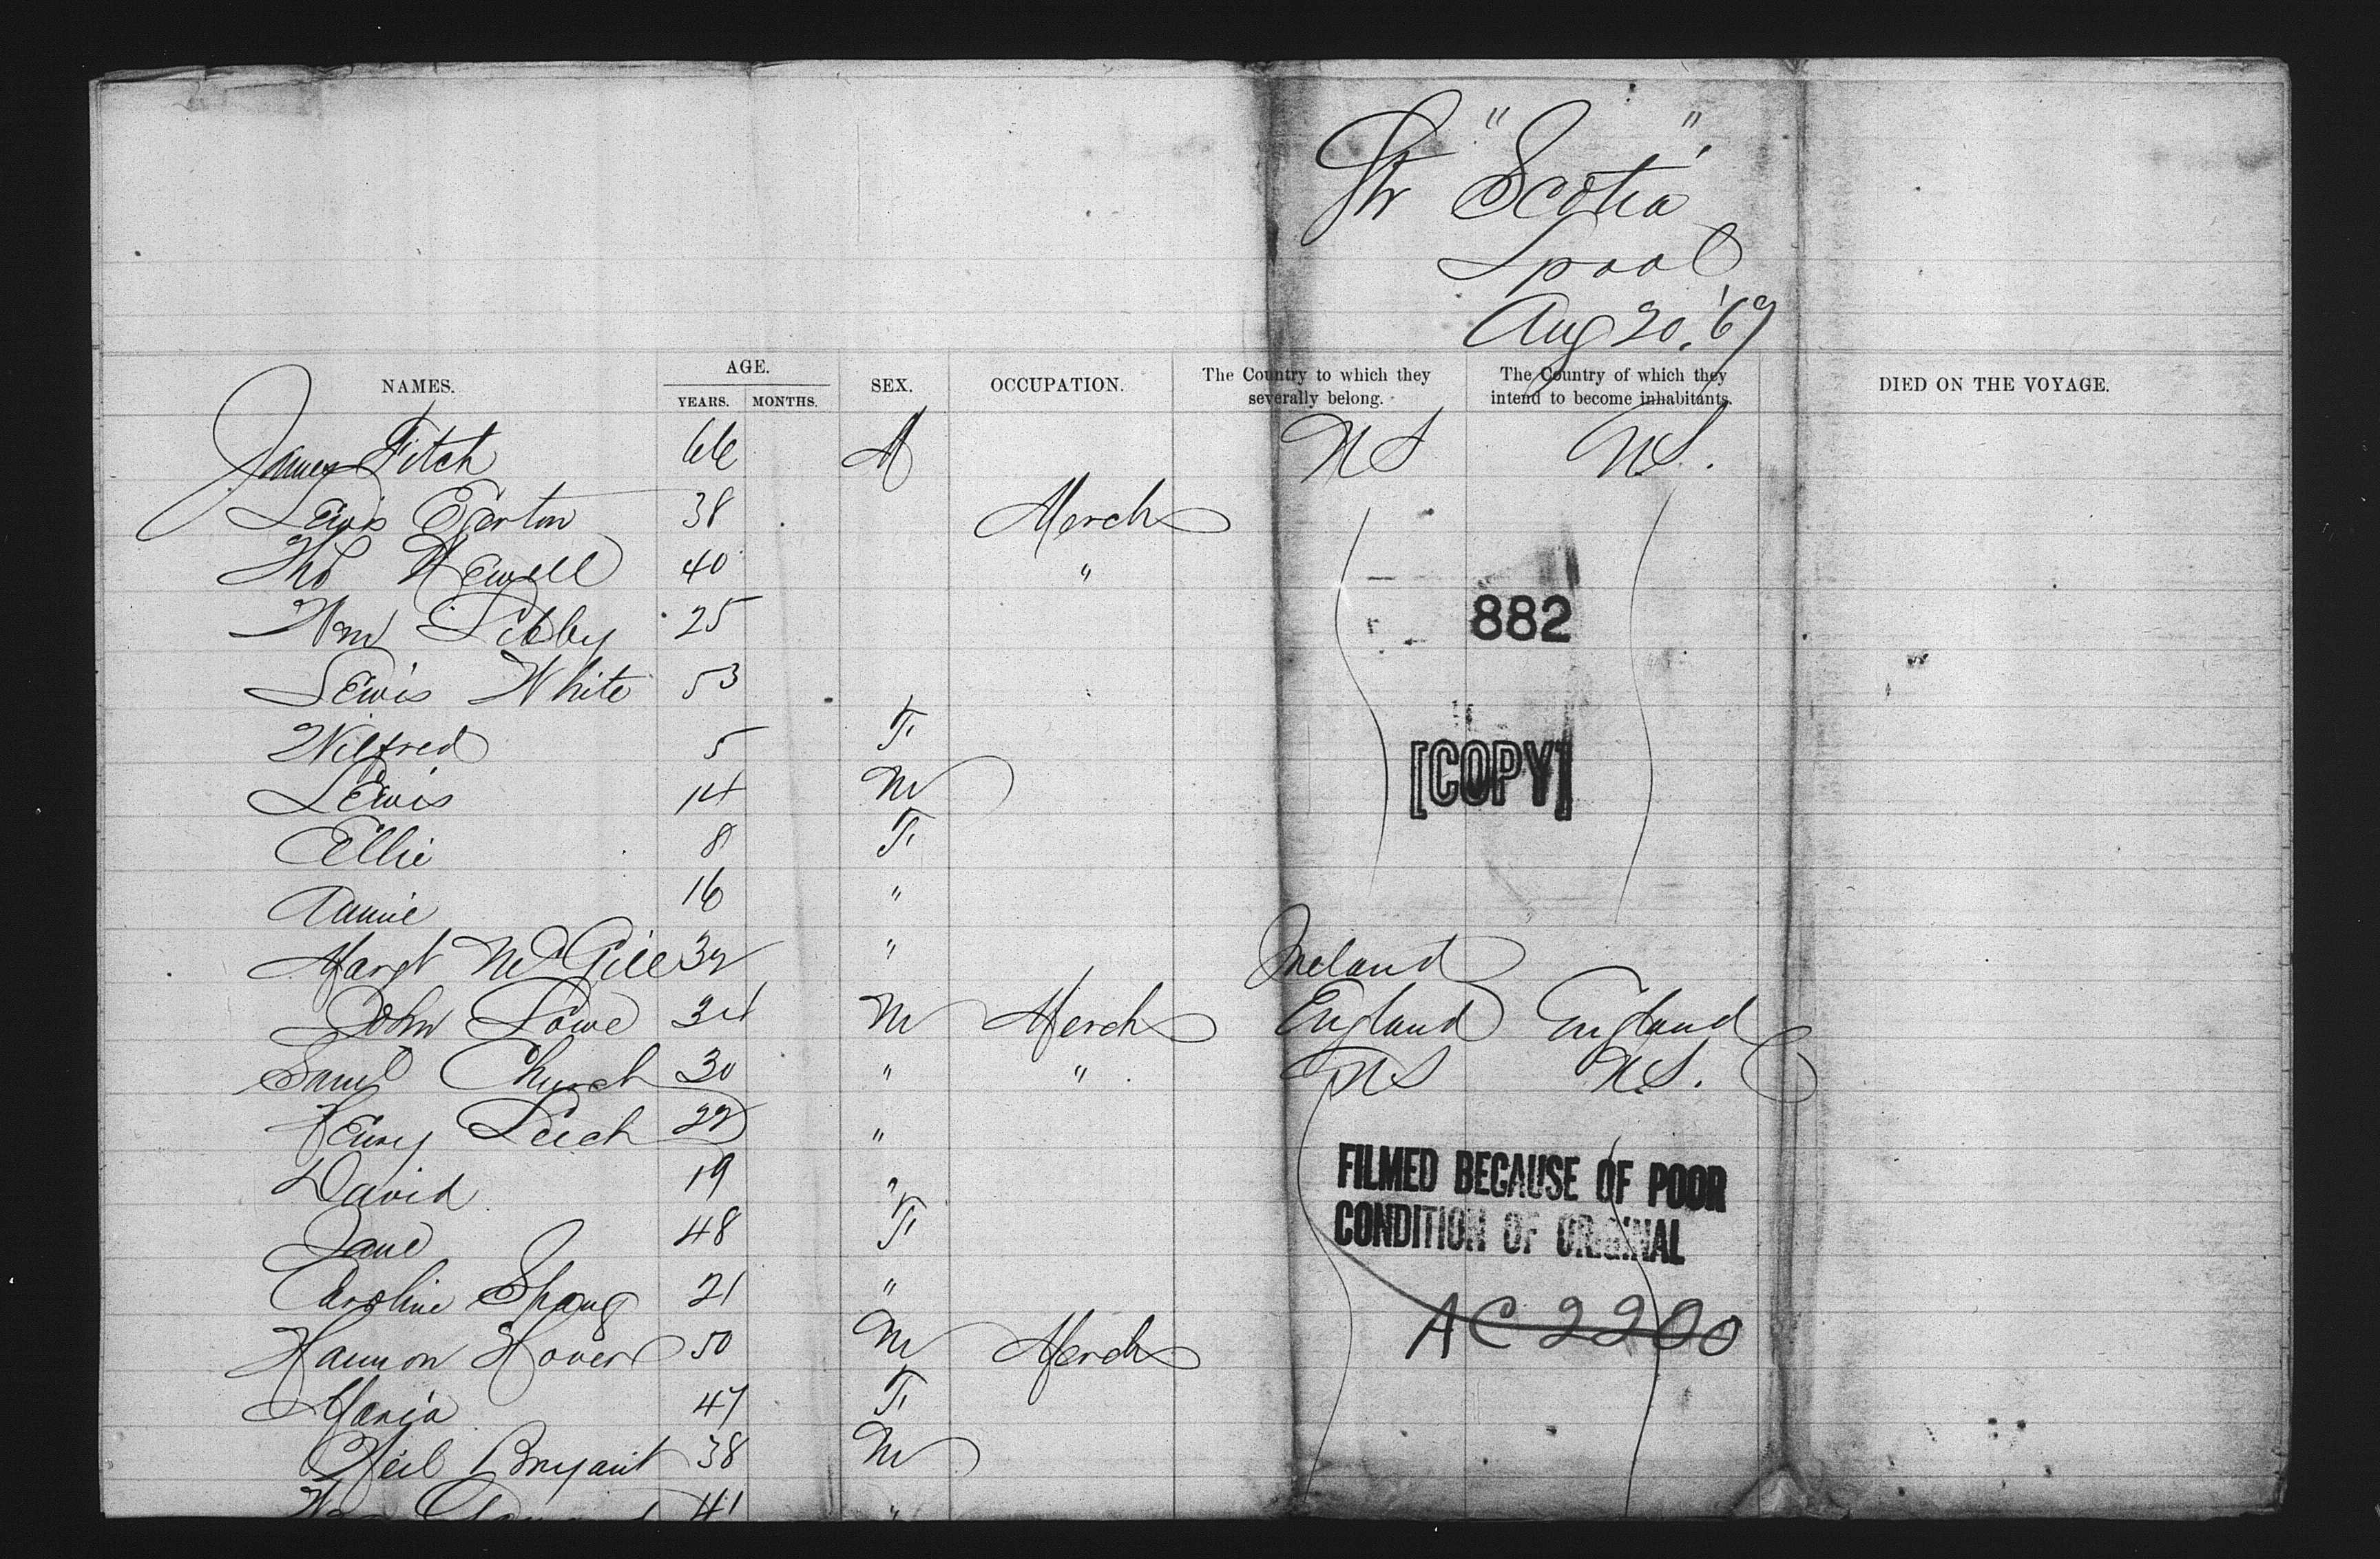 Str "Scotia"
Lpool
Aug 20, '69
NAMES. AGE. YEARS. MONTHS. SEX. OCCUPATION. The Country to which they severally belong. The Country of which they intend to become inhabitants. DIED ON THE VOYAGE.
James Fitch 66 M US U.S.
Lewis Egerton 38 Merch
Thos Newell 40 "
Wm Libby 25
882
Lewis White 53
Wilfred 5 F
[COPY]
Lewis 14 M
Ellie 8 F
Annie 16 "
Margt McGill 32 " Ireland
John Lowe 34 M Merch England England
Saml Church 30 " " US U.S.
Henry Leech 22 "
FILMED BECAUSE OF POOR
CONDITION OF ORIGINAL
David 19 "
Jane 48 F
Caroline Spang 21 "
AC 2200
Hannon Hover 50 M Merch
Maria 47 F
Neil Bryant 38 M
41 "